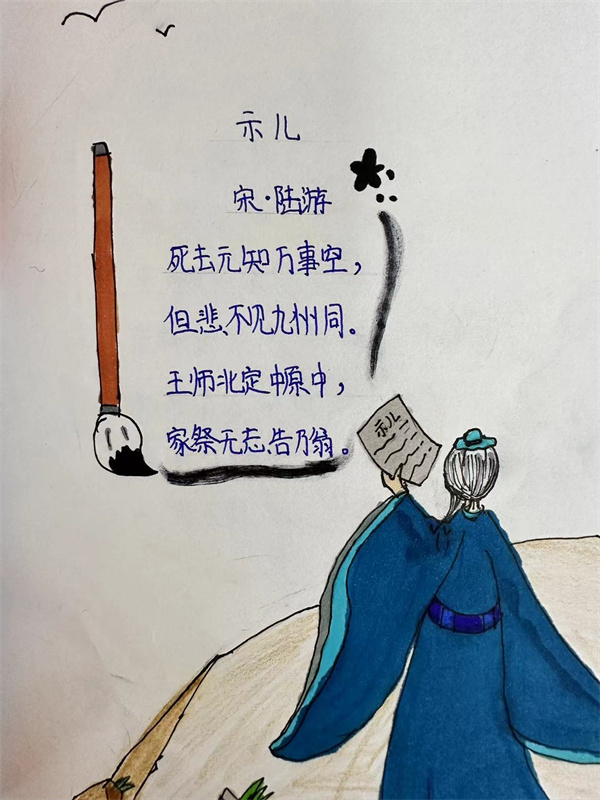 示儿
宋·陆游
死去元知万事空，
但悲不见九州同。
王师北定中原中，
家祭无忘告乃翁。
示儿